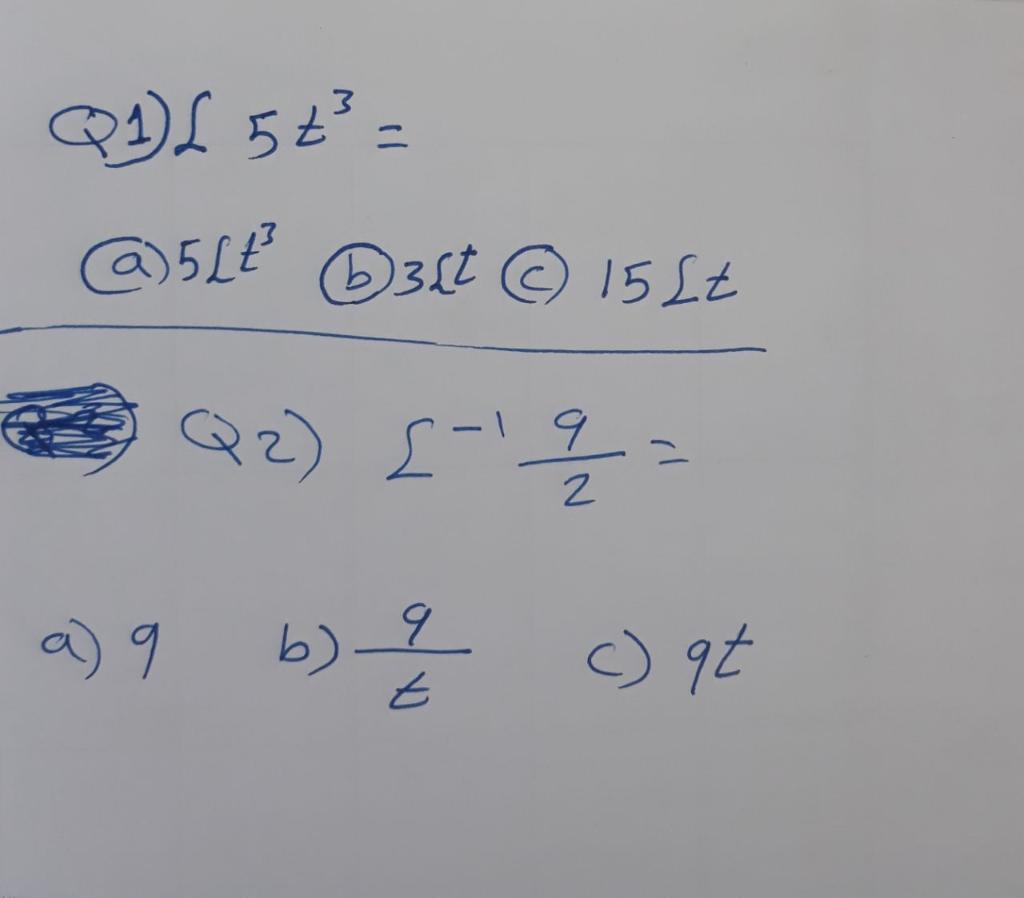 Q1) £ 5t³ =
a) 5£t³ b) 3£t c) 15£t
Q2) £⁻¹ 9/2 =
a) 9 b) 9/t c) 9t